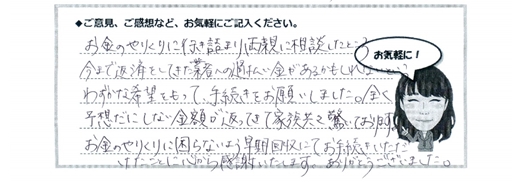 ◆ご意見、ご感想など、お気軽にご記入ください。
お気軽に！
お金のやりくりに行き詰まり両親に相談したところ
今まで返済をしてきた業者への過払い金があるかもしれないという
わずかな希望をもって、手続きをお願いしました。全く
予想だにしない金額が返ってきて家族共々驚いております。
お金のやりくりに困らないよう早期回収にてお手続きいただ
けたことに心から感謝いたします。ありがとうございました。